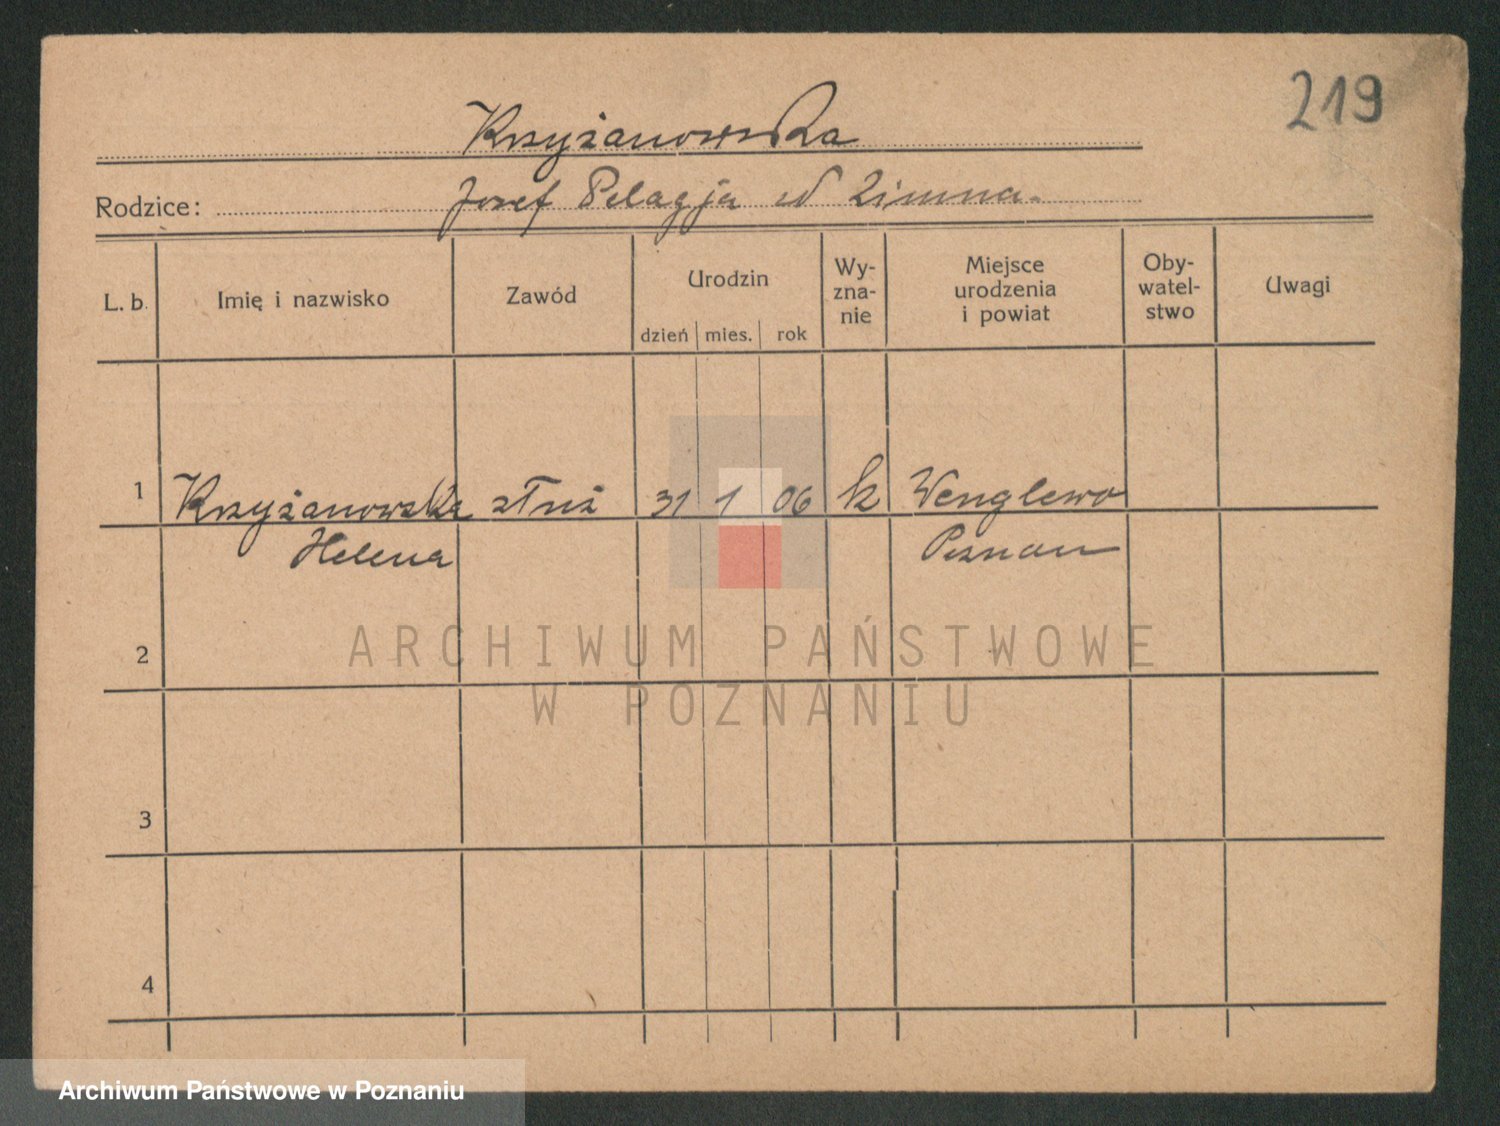 219
Krzyżanowska
Rodzice: Josef Pelagja Zimna.
L. b. Imię i nazwisko Zawód Urodzin Wy-zna-nie Miejsce urodzenia i powiat Oby-watel-stwo Uwagi
dzień mies. rok
1 Krzyżanowska służ 31 1 06 k Wenglewo
Helena Poznan
2
ARCHIWUM PAŃSTWOWE
W POZNANIU
3
4
Archiwum Państwowe w Poznaniu